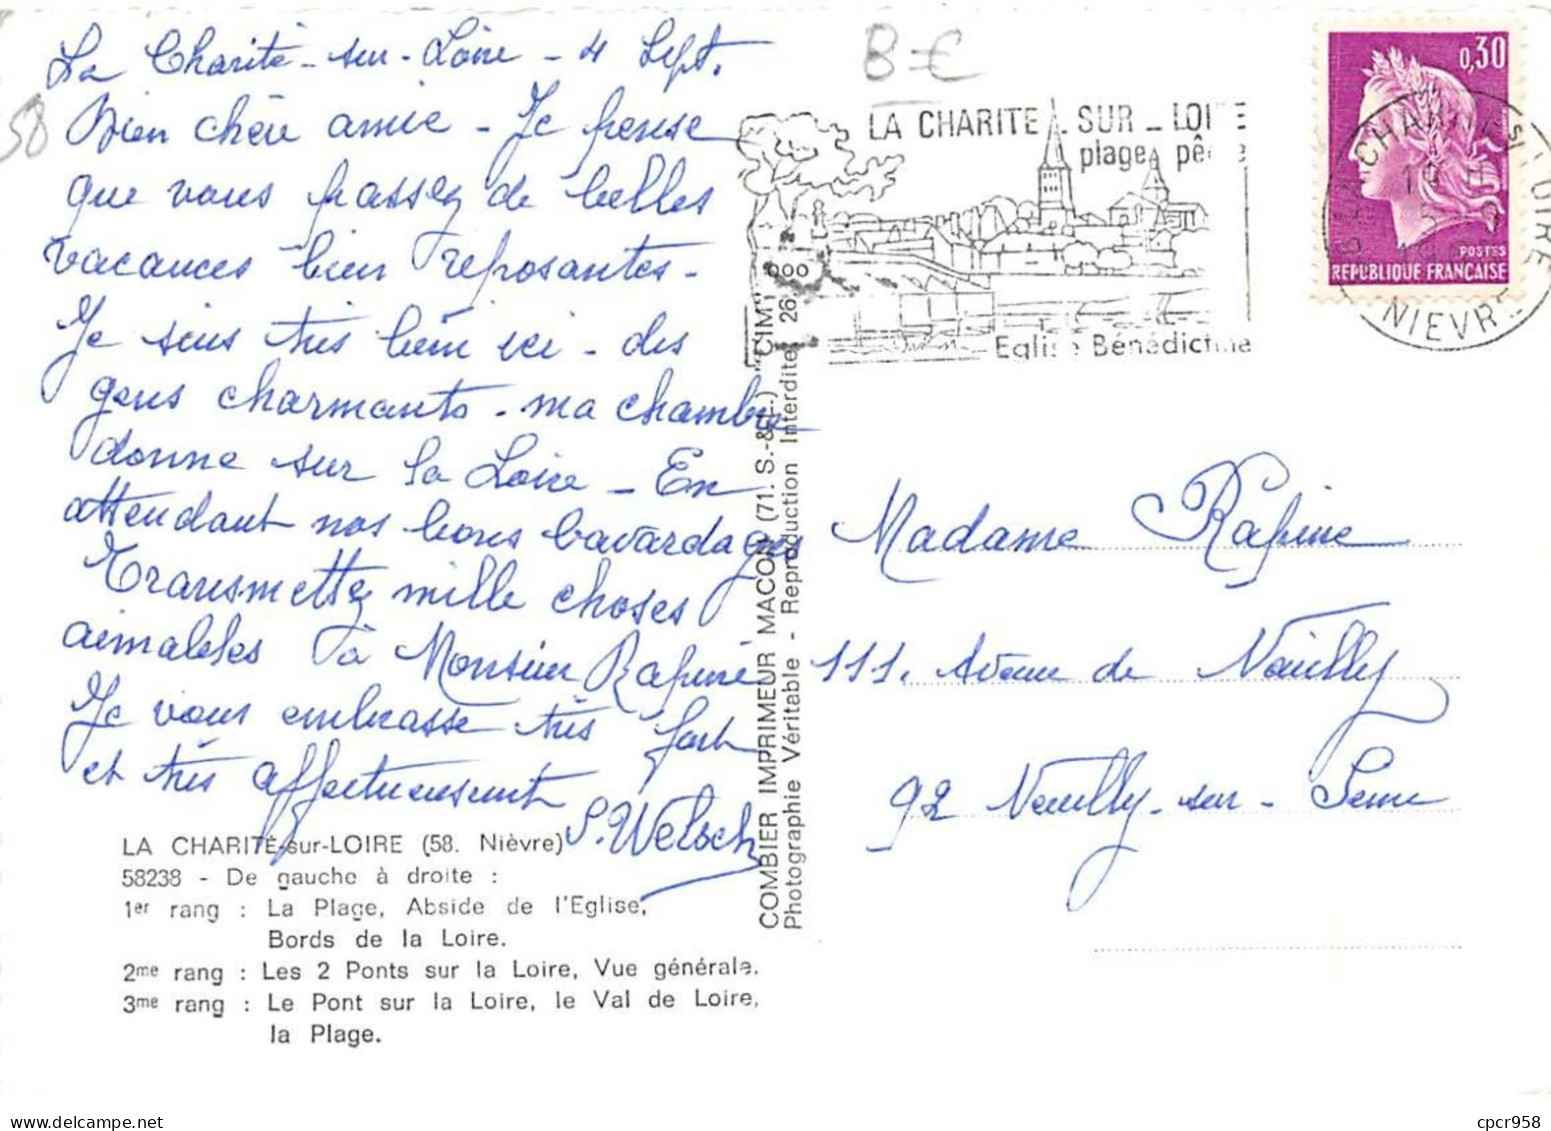 La Charité-sur-Loire - 4 Sept.
Bien chère amie - Je pense
que vous passez de belles
vacances bien reposantes -
Je suis très bien ici - des
gens charmants - ma chambre
donne sur la Loire - En
attendant nos bons bavardages
Transmettez mille choses
aimables à Monsieur Rapine
Je vous embrasse très fort
et très affectueusement
S. Welsch
58
B €
LA CHARITE - SUR - LOIRE
plage, pêche
Eglise Bénédictine
0,30
POSTES
REPUBLIQUE FRANÇAISE
NIEVRE
Madame Rapine
111. Avenue de Neuilly
92 Neuilly-sur-Seine
COMBIER IMPRIMEUR MACON (71. S.-&-L.) "CIM"
Photographie Véritable - Reproduction Interdite 26
LA CHARITÉ-sur-LOIRE (58. Nièvre)
58238 - De gauche à droite :
1er rang : La Plage, Abside de l'Eglise,
Bords de la Loire.
2me rang : Les 2 Ponts sur la Loire, Vue générale.
3me rang : Le Pont sur la Loire, le Val de Loire,
la Plage.
cpcr958